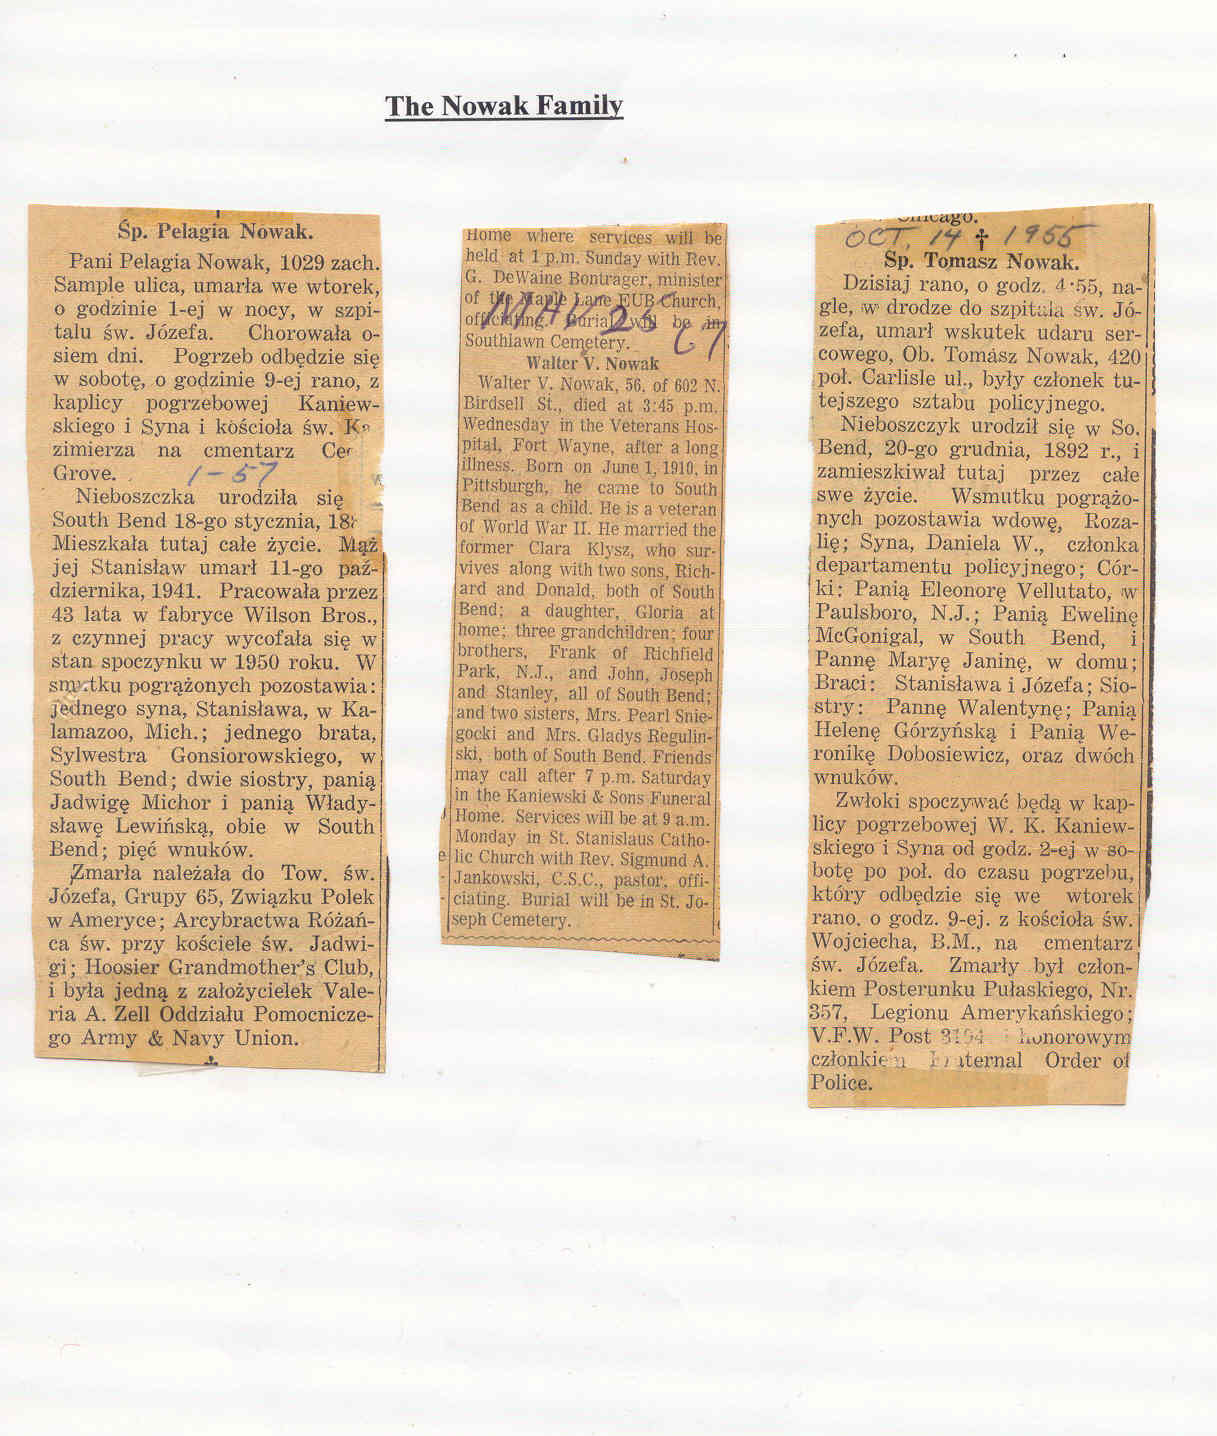 The Nowak Family
Śp. Pelagia Nowak.
Pani Pelagia Nowak, 1029 zach.
Sample ulica, umarła we wtorek,
o godzinie 1-ej w nocy, w szpi-
talu św. Józefa. Chorowała o-
siem dni. Pogrzeb odbędzie się
w sobotę, o godzinie 9-ej rano, z
kaplicy pogrzebowej Kaniew-
skiego i Syna i kościoła św. Ka
zimierza na cmentarz Ce
Grove.
1-57
Nieboszczka urodziła się
South Bend 18-go stycznia, 18
Mieszkała tutaj całe życie. Mąż
jej Stanisław umarł 11-go paź-
dziernika, 1941. Pracowała przez
43 lata w fabryce Wilson Bros.,
z czynnej pracy wycofała się w
stan spoczynku w 1950 roku. W
smutku pogrążonych pozostawia:
jednego syna, Stanisława, w Ka-
lamazoo, Mich.; jednego brata,
Sylwestra Gonsiorowskiego, w
South Bend; dwie siostry, panią
Jadwigę Michor i panią Włady-
sławę Lewińską, obie w South
Bend; pięć wnuków.
Zmarła należała do Tow. św.
Józefa, Grupy 65, Związku Polek
w Ameryce; Arcybractwa Różań-
ca św. przy kościele św. Jadwi-
gi; Hoosier Grandmother's Club,
i była jedną z założycielek Vale-
ria A. Zell Oddziału Pomocnicze-
go Army & Navy Union.
Home where services will be
held at 1 p.m. Sunday with Rev.
G. DeWaine Bontrager, minister
of the Maple Lane EUB Church,
officiating. Burial will be in
Southlawn Cemetery.
25
67
Walter V. Nowak
Walter V. Nowak, 56, of 602 N.
Birdsell St., died at 3:45 p.m.
Wednesday in the Veterans Hos-
pital, Fort Wayne, after a long
illness. Born on June 1, 1910, in
Pittsburgh, he came to South
Bend as a child. He is a veteran
of World War II. He married the
former Clara Klysz, who sur-
vives along with two sons, Rich-
ard and Donald, both of South
Bend; a daughter, Gloria at
home; three grandchildren; four
brothers, Frank of Richfield
Park, N.J., and John, Joseph
and Stanley, all of South Bend;
and two sisters, Mrs. Pearl Snie-
gocki and Mrs. Gladys Regulin-
ski, both of South Bend. Friends
may call after 7 p.m. Saturday
in the Kaniewski & Sons Funeral
Home. Services will be at 9 a.m.
Monday in St. Stanislaus Catho-
lic Church with Rev. Sigmund A.
Jankowski, C.S.C., pastor, offi-
ciating. Burial will be in St. Jo-
seph Cemetery.
Chicago.
OCT. 14 1955
Śp. Tomasz Nowak.
Dzisiaj rano, o godz. 4:55, na-
gle, w drodze do szpitala św. Jó-
zefa, umarł wskutek udaru ser-
cowego, Ob. Tomasz Nowak, 420
poł. Carlisle ul., były członek tu-
tejszego sztabu policyjnego.
Nieboszczyk urodził się w So.
Bend, 20-go grudnia, 1892 r., i
zamieszkiwał tutaj przez całe
swe życie. Wsmutku pogrążo-
nych pozostawia wdowę, Roza-
lię; Syna, Daniela W., członka
departamentu policyjnego; Cór-
ki: Panią Eleonorę Vellutato, w
Paulsboro, N.J.; Panią Ewelinę
McGonigal, w South Bend, i
Pannę Maryę Janinę, w domu;
Braci: Stanisława i Józefa; Sio-
stry: Pannę Walentynę; Panią
Helenę Górzyńską i Panią We-
ronikę Dobosiewicz, oraz dwóch
wnuków.
Zwłoki spoczywać będą w kap-
licy pogrzebowej W. K. Kaniew-
skiego i Syna od godz. 2-ej w so-
botę po poł. do czasu pogrzebu,
który odbędzie się we wtorek
rano, o godz. 9-ej. z kościoła św.
Wojciecha, B.M., na cmentarz
św. Józefa. Zmarły był człon-
kiem Posterunku Pułaskiego, Nr.
357, Legionu Amerykańskiego;
V.F.W. Post i honorowym
członkiem Fraternal Order of
Police.